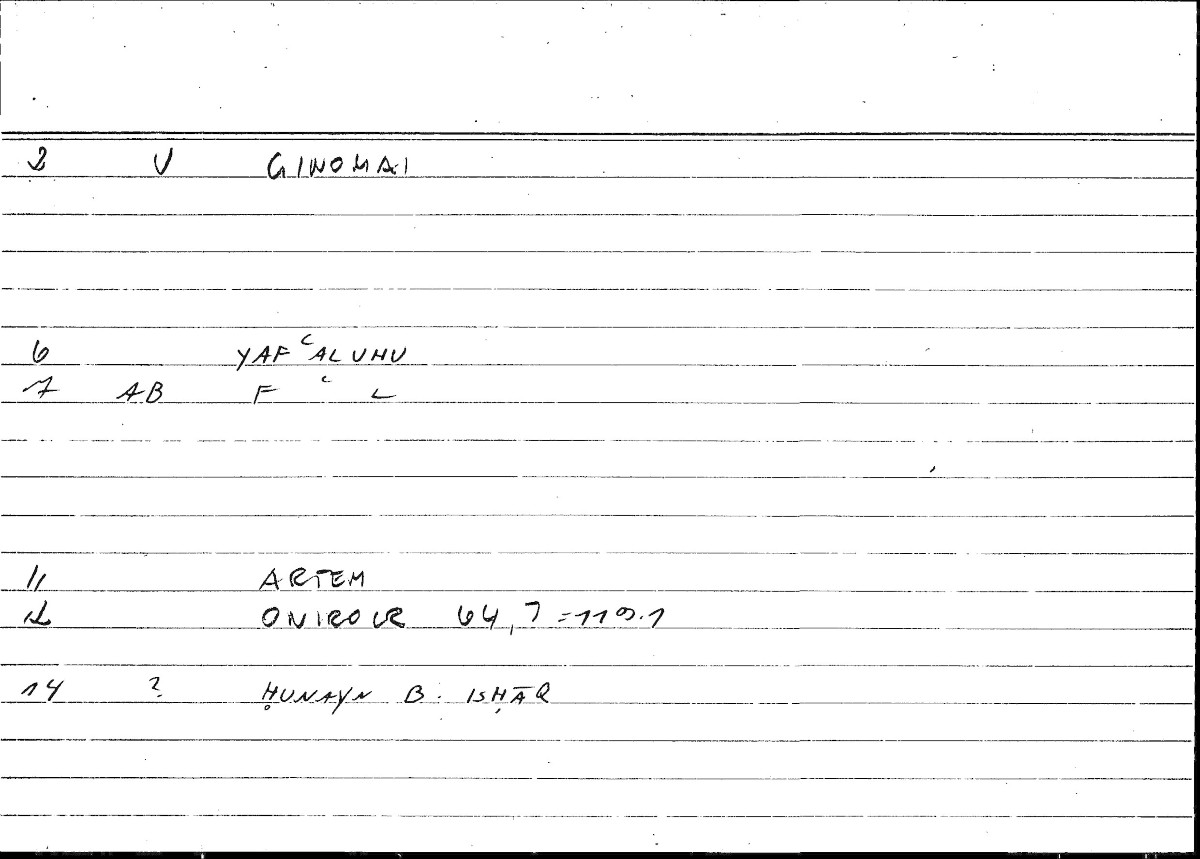 2 V GINOMAI
6 YAFʿALUHU
7 AB F ʿ L
11 ARTEM
12 ONIROCR 64,7=119.1
14 ? ḤUNAYN B. ISḤĀQ